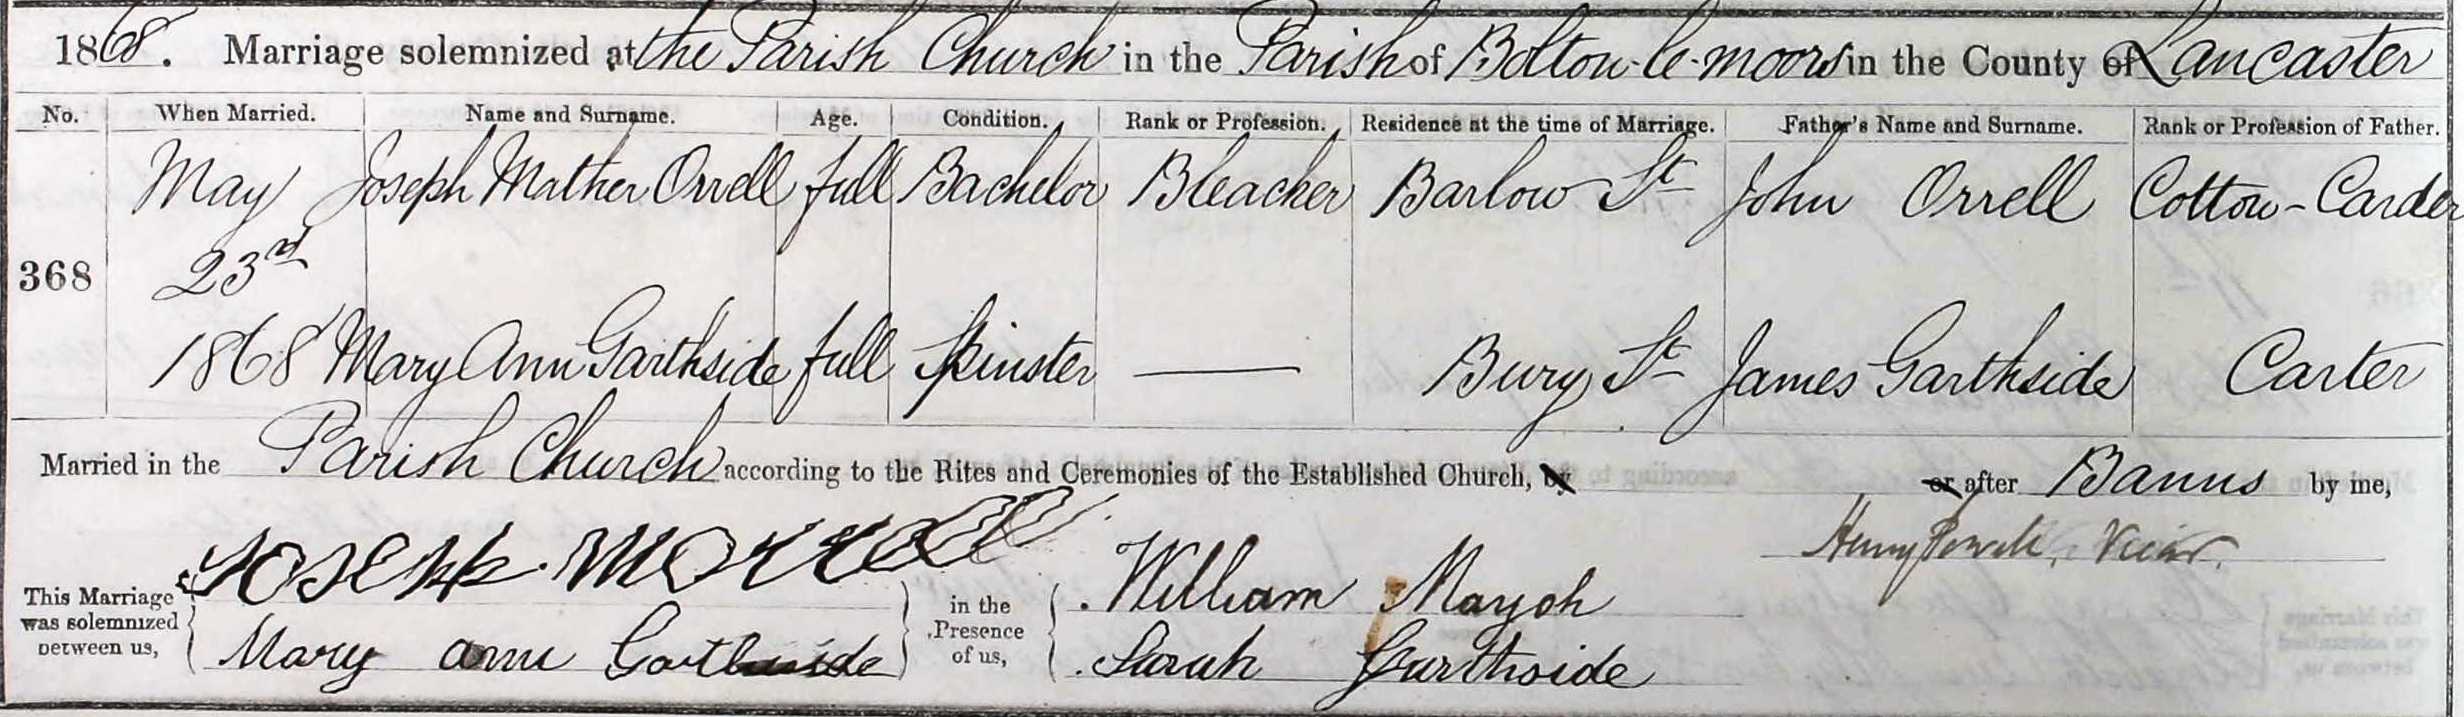 1868. Marriage solemnized at the Parish Church in the Parish of Bolton-le-moors in the County of Lancaster
No. When Married. Name and Surname. Age. Condition. Rank or Profession. Residence at the time of Marriage. Father's Name and Surname. Rank or Profession of Father.
May Joseph Mather Orrell full Bachelor Bleacker Barlow St John Orrell Cotton-Carder
368 23rd
1868 Mary Ann Garthside full Spinster Bury St James Garthside Carter
Married in the Parish Church according to the Rites and Ceremonies of the Established Church, by or after Banns by me,
Henry Powell, Vicar.
This Marriage was solemnized between us,
Joseph M Orrell
Mary ann Garthside
in the Presence of us,
William Mayoh
Sarah Garthside